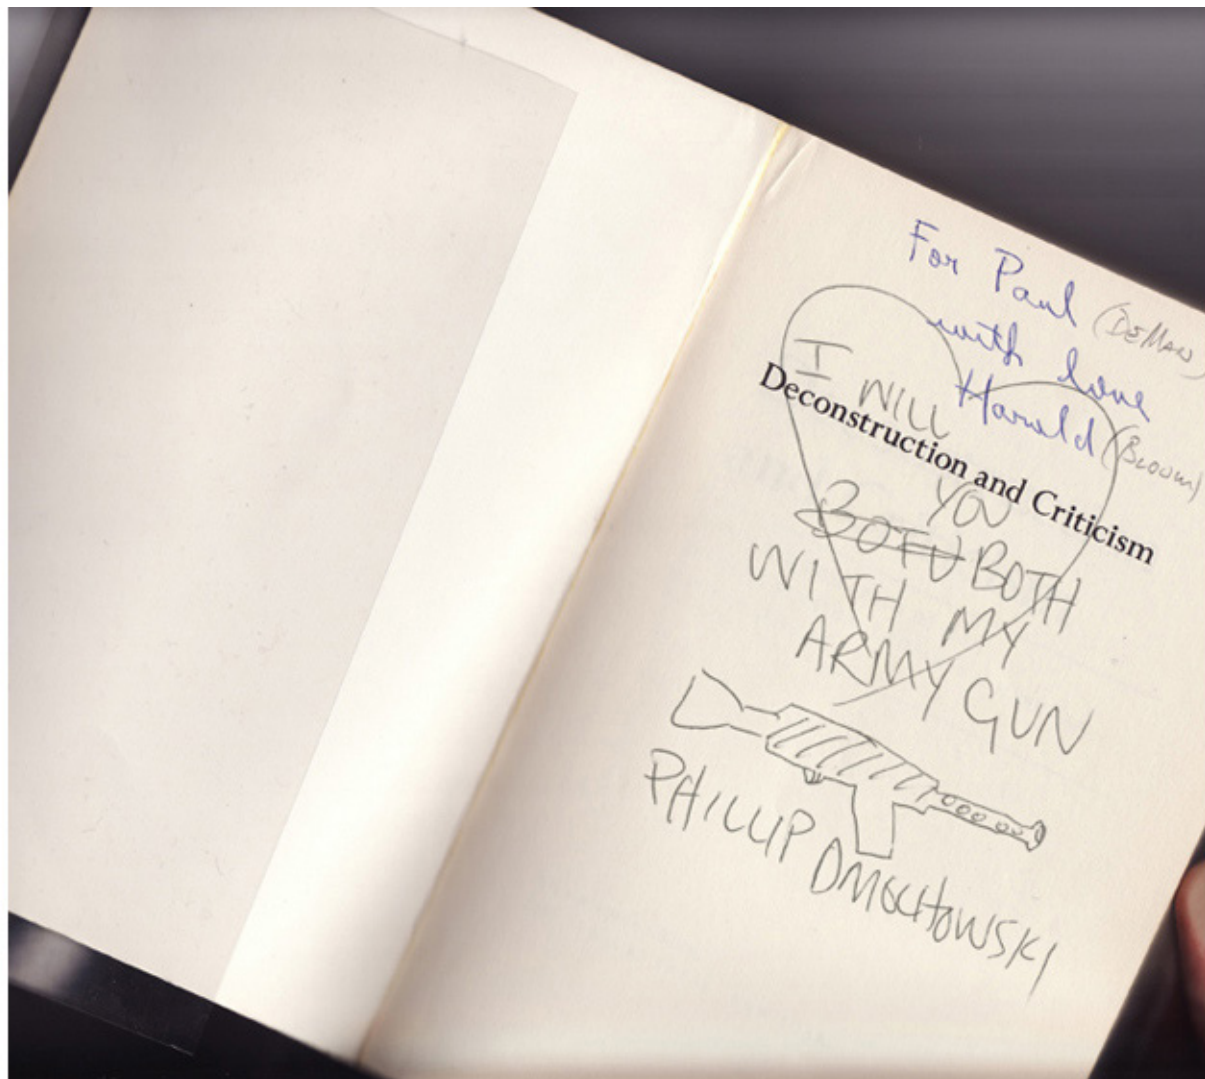 For Paul (DEMAN)
with love
Harold (BLOOM)
Deconstruction and Criticism
I
WILL
YOU
BOTU BOTH
WITH MY
ARMY GUN
PHILLIP DMOCHOWSKI